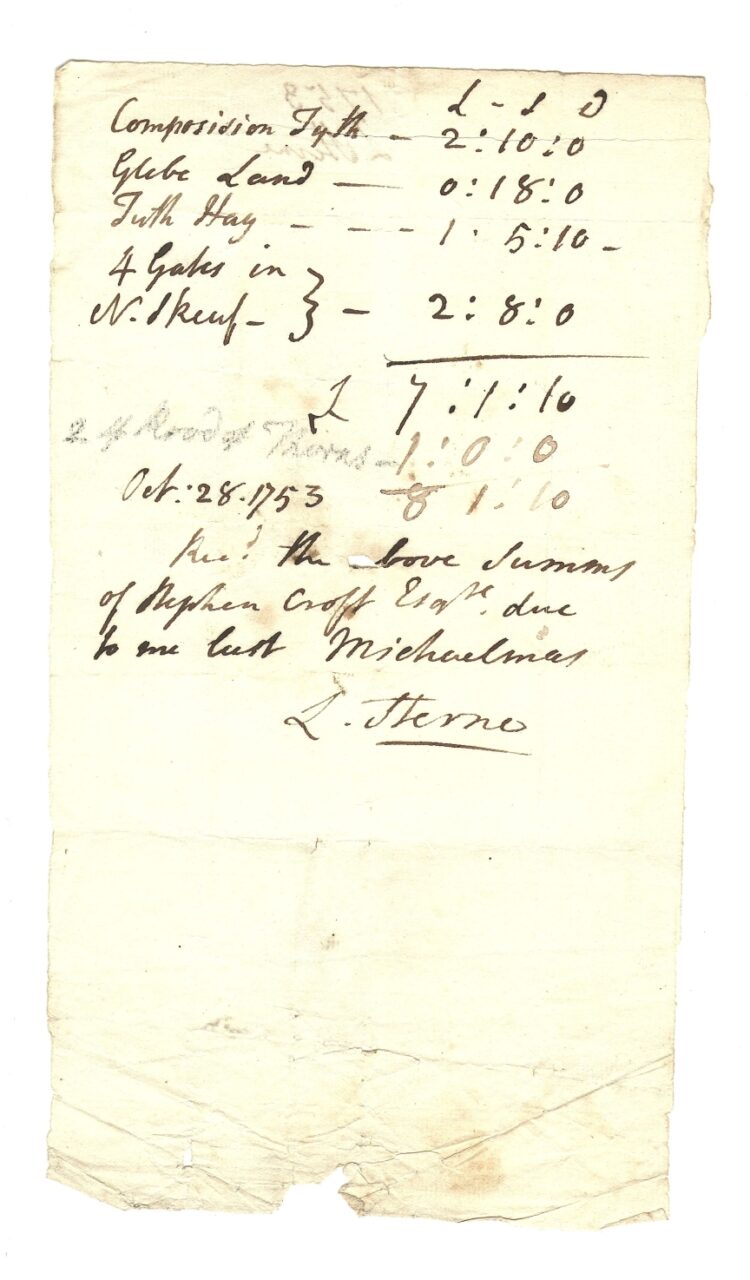 L - S D
Composision Tyth - 2:10:0
Glebe Land — 0:18:0
Tyth Hay - - - 1 : 5:10 -
4 Gates in
N. Skeuf - } - 2:8:0
L 7:1:10
2 Roods Thorns - 1:0:0
Oct: 28. 1753 8 1:10
Rec.d the bove Summs
of Stephen Croft Esqre. due
to me last Michaelmas
L. Sterne